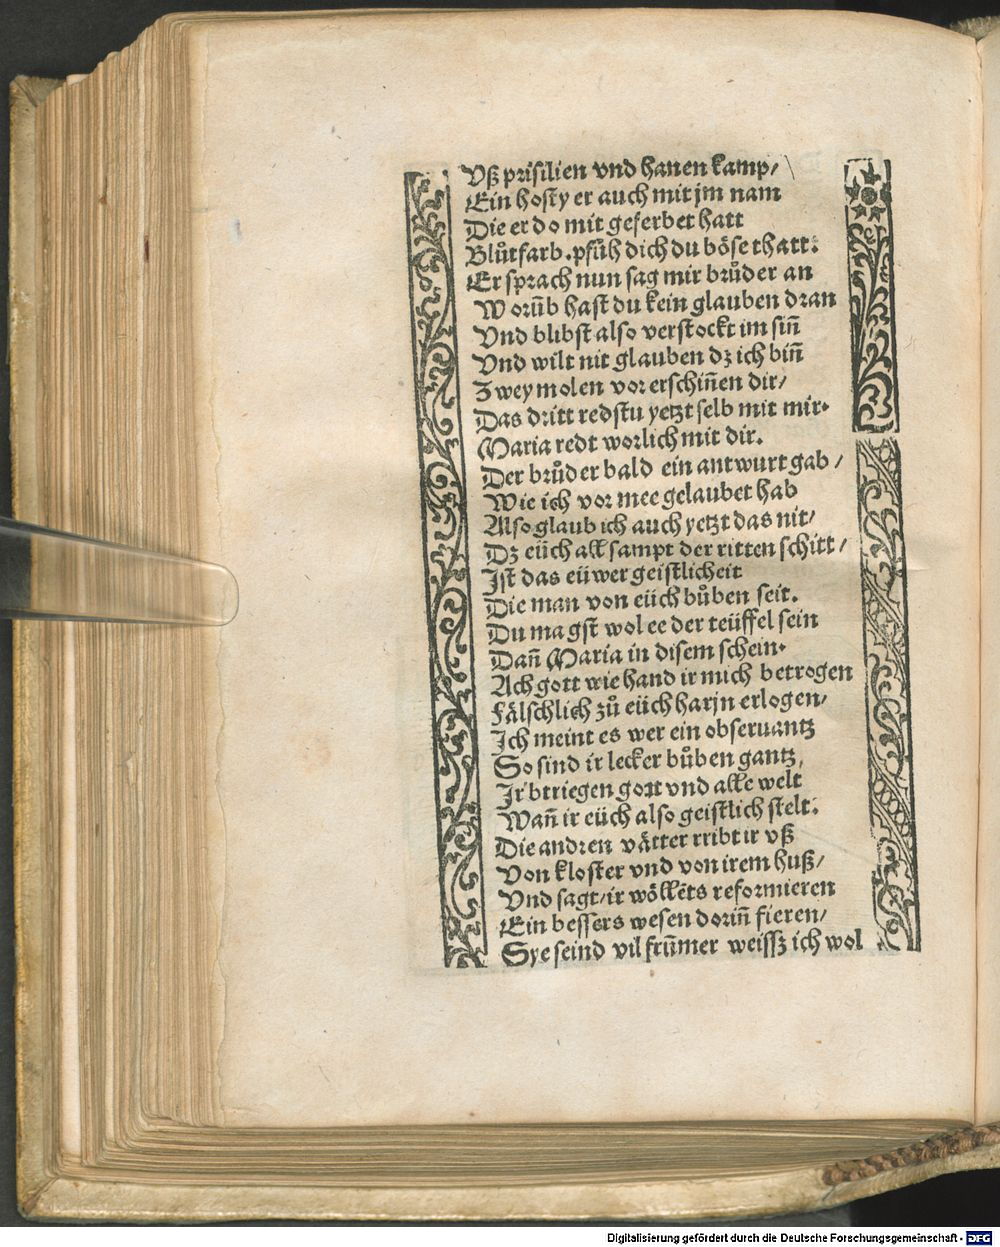 Vß prisilien vnd hanen kamp/
Ein hosty er auch mit jm nam
Die er do mit geferbet hatt
Blůtfarb. pfüh dich du böse thatt:
Er sprach nun sag mir brůder an
Worūb hast du kein glauben dran
Vnd blibst also verstockt im siñ
Vnd wilt nit glauben dz ich biñ
Zwey molen vor erschiñen dir/
Das dritt redstu yetzt selb mit mir.
Maria redt worlich mit dir.
Der brůder bald ein antwurt gab/
Wie ich vor mee gelaubet hab
Also glaub ich auch yetzt das nit/
Dz eüch all sampt der ritten schitt/
Jst das eüwer geistlicheit
Die man von eüch bůben seit.
Du magst wol ee der teüffel sein
Dañ Maria in disem schein.
Ach gott wie hand ir mich betrogen
Fälschlich zů eüch harjn erlogen/
Jch meint es wer ein obseruantz
So sind ir lecker bůben gantz,
Jr btriegen gott vnd alle welt
Wañ ir eüch also geistlich stelt.
Die andren vätter tribt ir vß
Von kloster vnd von irem huß/
Vnd sagt/ ir wöllēts reformieren
Ein bessers wesen doriñ fieren/
Sye seind vil frūmer weissz ich wol
Digitalisierung gefördert durch die Deutsche Forschungsgemeinschaft - DFG